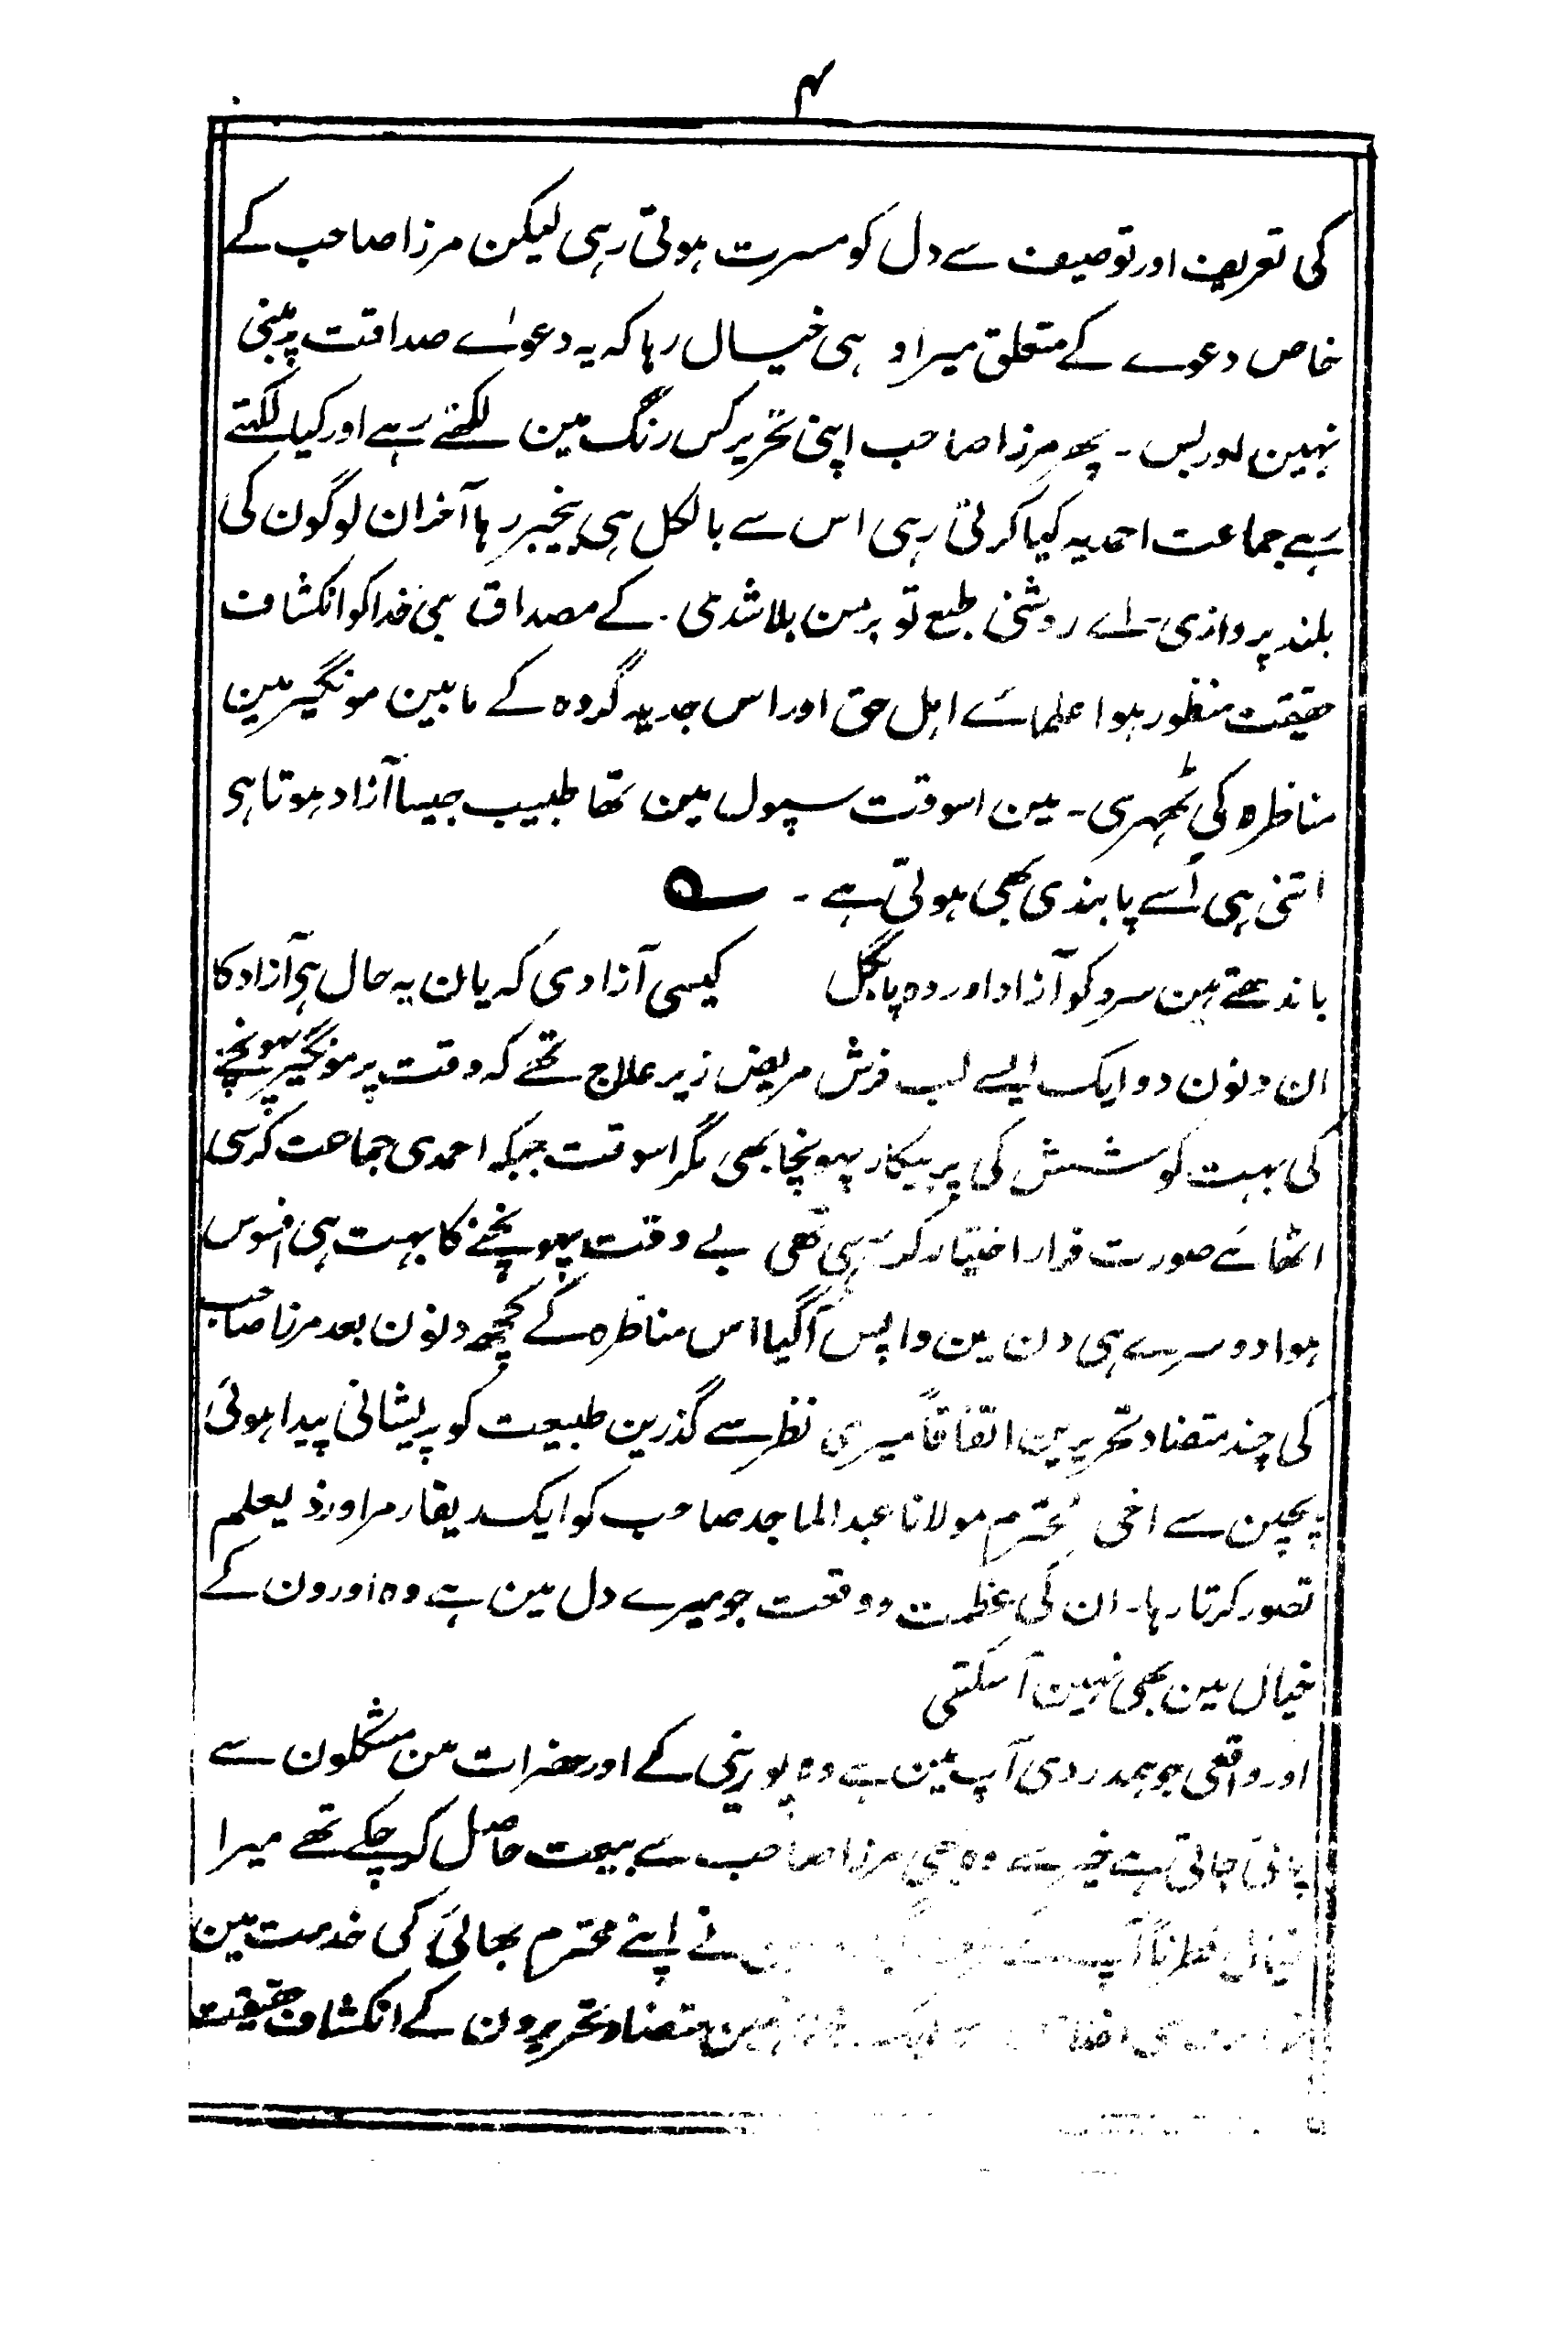 ۴
کی تعریف اور توصیف سے دل کو مسرت ہوتی رہی لیکن مرزا صاحب کے
خاص دعوے کے متعلق میرا وہی خیال رہا کہ یہ دعوائے صداقت پر مبنی
نہین اور بس ۔ پھر مرزا صاحب اپنی تحریر کس رنگ مین لکھتے رہے اور کیا لکھتے
رہے جماعت احمدیہ کیا کرتی رہی اس سے بالکل ہی بیخبر رہا آخر ان لوگون کی
بلند پروازی ۔ اے روشنیٔ طبع تو بر من بلا شدی ۔ کے مصداق بنی خدا کو انکشاف
حقیقت منظور ہوا علمائے اہل حق اور اس جدید گروہ کے مابین مونگیر مین
مناظرہ کی ٹھہری ۔ مین اسوقت سپول مین تھا طبیب جیسا آزاد ہوتا ہی
اتنی ہی اُسے پابندی بھی ہوتی ہے ۔ ؎
باندھتے ہین سرو کو آزاد اور وہ پابگل کیسی آزادی کہ یان یہ حال ہی آزاد کا
ان دنون دو ایک ایسے لب فرش مریض زیر علاج تھے کہ وقت پر مونگیر پہونچنے
کی بہت کوشش کی پر بیکار پہونچا بھی مگر اسوقت جبکہ احمدی جماعت کرسی
اٹھائے صورت فرار اختیار کر رہی تھی بے وقت پہونچنے کا بہت ہی افسوس
ہوا دوسرے ہی دن مین واپس آگیا اس مناظرہ کے کچھ دنون بعد مرزا صاحب
کی چند متضاد تحریرین اتفاقاً میری نظر سے گذرین طبیعت کو پریشانی پیدا ہوئی
بچپن سے اخی محترم مولانا عبدالماجد صاحب کو ایک ریفارمر اور ذیعلم
تصور کرتا رہا ۔ ان کی عظمت و وقعت جو میرے دل مین ہے وہ اورون کے
خیال مین بھی نہین آسکتی
اور واقعی جو ہمدردی آپ مین ہے وہ پورینی کے اور حضرات مین مشکلون سے
پائی جاتی ہے خیر سے وہ بھی مرزا صاحب سے بیعت حاصل کر چکے تھے میرا
خیال فطرتاً آپ نے اپنے محترم بھائی کی خدمت مین
متضاد تحریرون کے انکشاف حقیقت